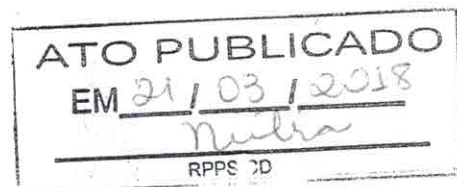 ATO PUBLICADO
EM 21 / 03 / 2018
RPPS